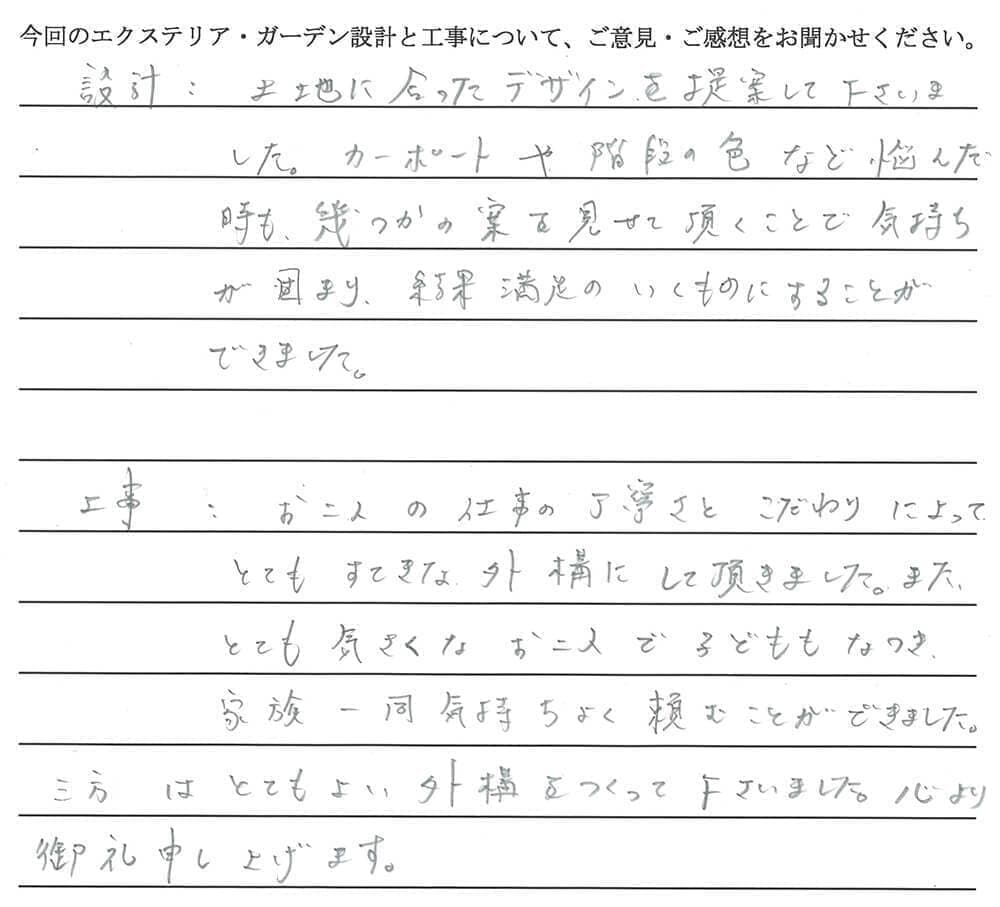 今回のエクステリア・ガーデン設計と工事について、ご意見・ご感想をお聞かせください。
設計：土地に合ったデザインを提案して下さいま
した。カーポートや階段の色など悩んだ
時も、幾つかの案を見せて頂くことで気持ち
が固まり、結果満足のいくものにすることが
できました。
工事：お二人の仕事の丁寧さとこだわりによって
とてもすてきな外構にして頂きました。また、
とても気さくなお二人で子どももなつき、
家族一同気持ちよく頼むことができました。
三方はとてもよい外構をつくって下さいました。心より
御礼申し上げます。